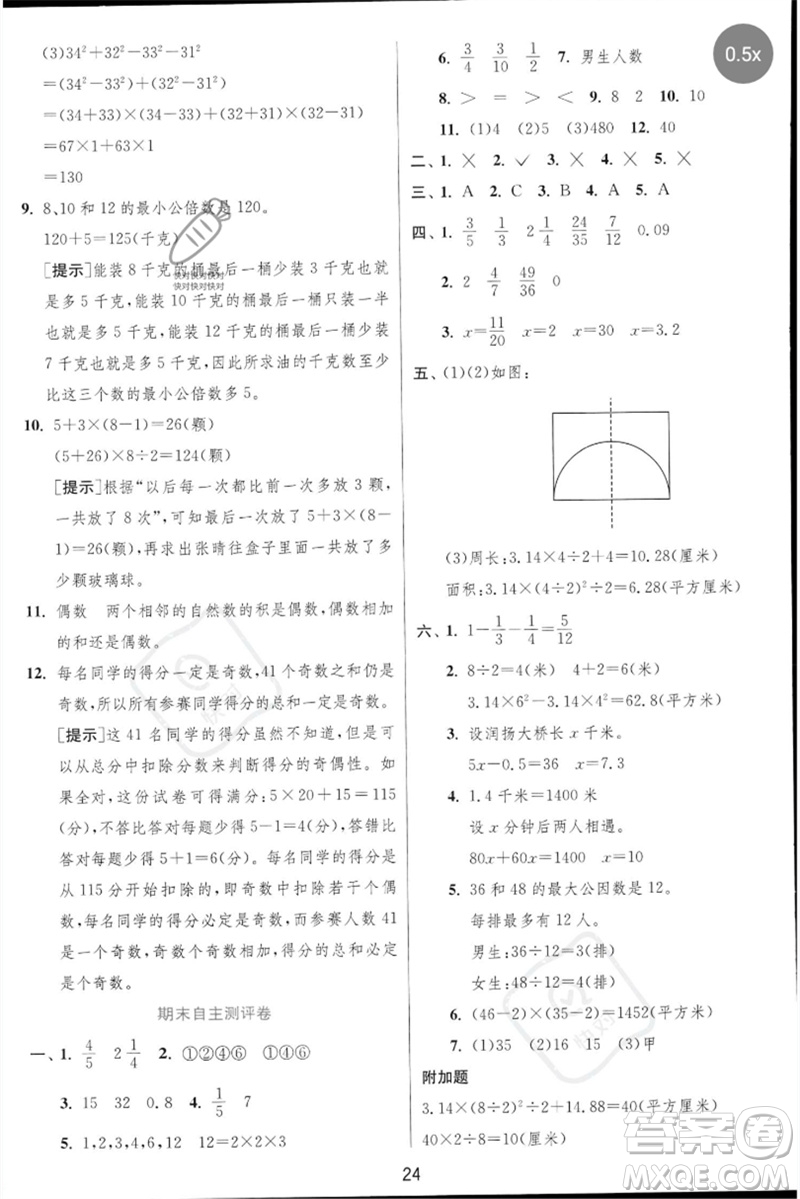 (3)34²+32²-33²-31²
=(34²-33²)+(32²-31²)
=(34+33)×(34-33)+(32+31)×(32-31)
=67×1+63×1
=130
9. 8、10 和 12 的最小公倍数是 120。
120+5=125(千克)
[提示]能装 8 千克的桶最后一桶少装 3 千克也就
是多 5 千克，能装 10 千克的桶最后一桶只装一半
也就是多 5 千克，能装 12 千克的桶最后一桶少装
7 千克也是多 5 千克，因此所求油的千克数至少
比这三个数的最小公倍数多 5。
10. 5+3×(8-1)=26(颗)
(5+26)×8÷2=124(颗)
[提示]根据“以后每一次都比前一次多放 3 颗，
一共放了 8 次”，可知最后一次放了 5+3×(8-
1)=26(颗)，再求出张晴往盒子里面一共放了多
少颗玻璃球。
11. 偶数 两个相邻的自然数的积是偶数，偶数相加
的和还是偶数。
12. 每名同学的得分一定是奇数，41 个奇数之和仍是
奇数，所以所有参赛同学得分的总和是奇数。
[提示]这 41 名同学的得分虽然不知道，但是可
以从总分中扣除分数来判断得分的奇偶性。如
果全对，这份试卷可得满分：5×20+15=115
(分)，不答比答对每题少 5-1=4(分)，答错比
答对每题少 5+1=6(分)。每名同学的得分都是
从 115 分开始扣除的，即奇数-偶数-偶数=奇
数。每名同学的得分必定是奇数，而参赛人数 41
是一个奇数，奇数个奇数相加，得分的总和必定是
奇数。
期末自主测评卷
一、1. 4/5 2 1/4 2. ①②④⑥ ①④⑥
3. 15 32 0.8 4. 1/5 7
5. 1,2,3,4,6,12 12=2×2×3
6. 3/4 3/10 1/2 7. 男生人数
8. > = > < 9. 8 2 10. 10
11. (1)4 (2)5 (3)480 12. 40
二、1. × 2. ✓ 3. × 4. × 5. ×
三、1. A 2. C 3. B 4. A 5. A
四、1. 3/5 1/3 2 1/4 24/35 7/12 0.09
2. 2 4/7 49/36 0
3. x=11/20 x=2 x=30 x=3.2
五、(1)(2)如图：
(3)周长：3.14×4÷2+4=10.28(厘米)
面积：3.14×(4÷2)²÷2=6.28(平方厘米)
六、1. 1-1/3-1/4=5/12
2. 8÷2=4(米) 4+2=6(米)
3.14×6²-3.14×4²=62.8(平方米)
3. 设润扬大桥长 x 千米。
5x-0.5=36 x=7.3
4. 1.4 千米=1400 米
设 x 分钟后两人相遇。
80x+60x=1400 x=10
5. 36 和 48 的最大公因数是 12。
每排最多有 12 人。
男生：36÷12=3(排)
女生：48÷12=4(排)
6. (46-2)×(35-2)=1452(平方米)
7. (1)35 (2)16 15 (3)甲
附加题
3.14×(8÷2)²÷2+14.88=40(平方厘米)
40×2÷8=10(厘米)
24
0.5x
快对快对快对
快对快对快对
答案卷
MXQE.COM